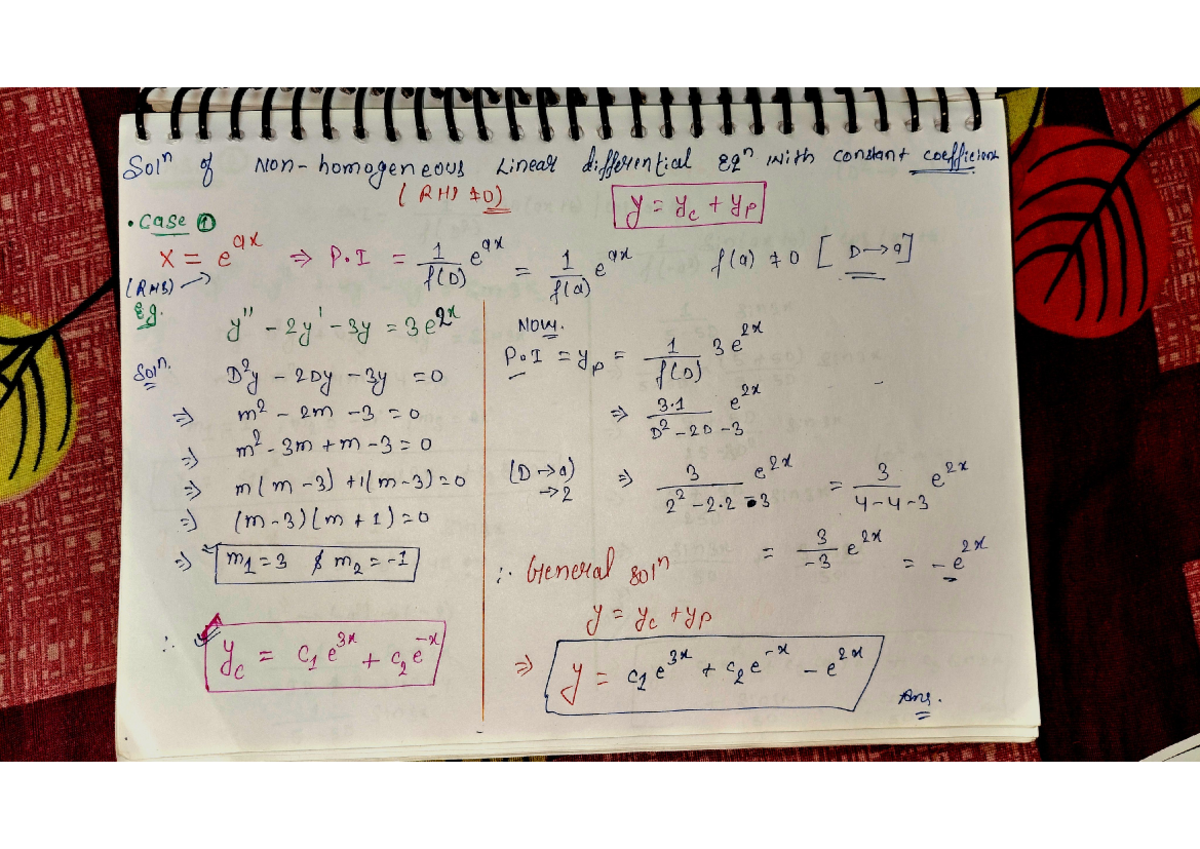 Solⁿ of Non-homogeneous Linear differential Eqⁿ with constant coefficient
(RHS ≠0)
y = y_c + y_p
• Case ①
X = e^{ax} ⇒ P.I = 1/f(D) e^{ax} = 1/f(a) e^{ax} f(a) ≠ 0 [D→a]
(RHS)
Eg. y'' - 2y' - 3y = 3e^{2x}
Solⁿ. D²y - 2Dy - 3y = 0
⇒ m² - 2m - 3 = 0
⇒ m² - 3m + m - 3 = 0
⇒ m(m - 3) + 1(m - 3) = 0
⇒ (m - 3)(m + 1) = 0
⇒ m₁ = 3 & m₂ = -1
∴ y_c = c₁e^{3x} + c₂e^{-x}
Now.
P.I = y_p = 1/f(D) 3e^{2x}
⇒ 3·1/(D² - 2D - 3) e^{2x}
(D→a) ⇒ 3/(2² - 2·2 - 3) e^{2x} = 3/(4 - 4 - 3) e^{2x}
→2
= 3/-3 e^{2x} = -e^{2x}
∴ General solⁿ
y = y_c + y_p
⇒ y = c₁e^{3x} + c₂e^{-x} - e^{2x}
Ans.